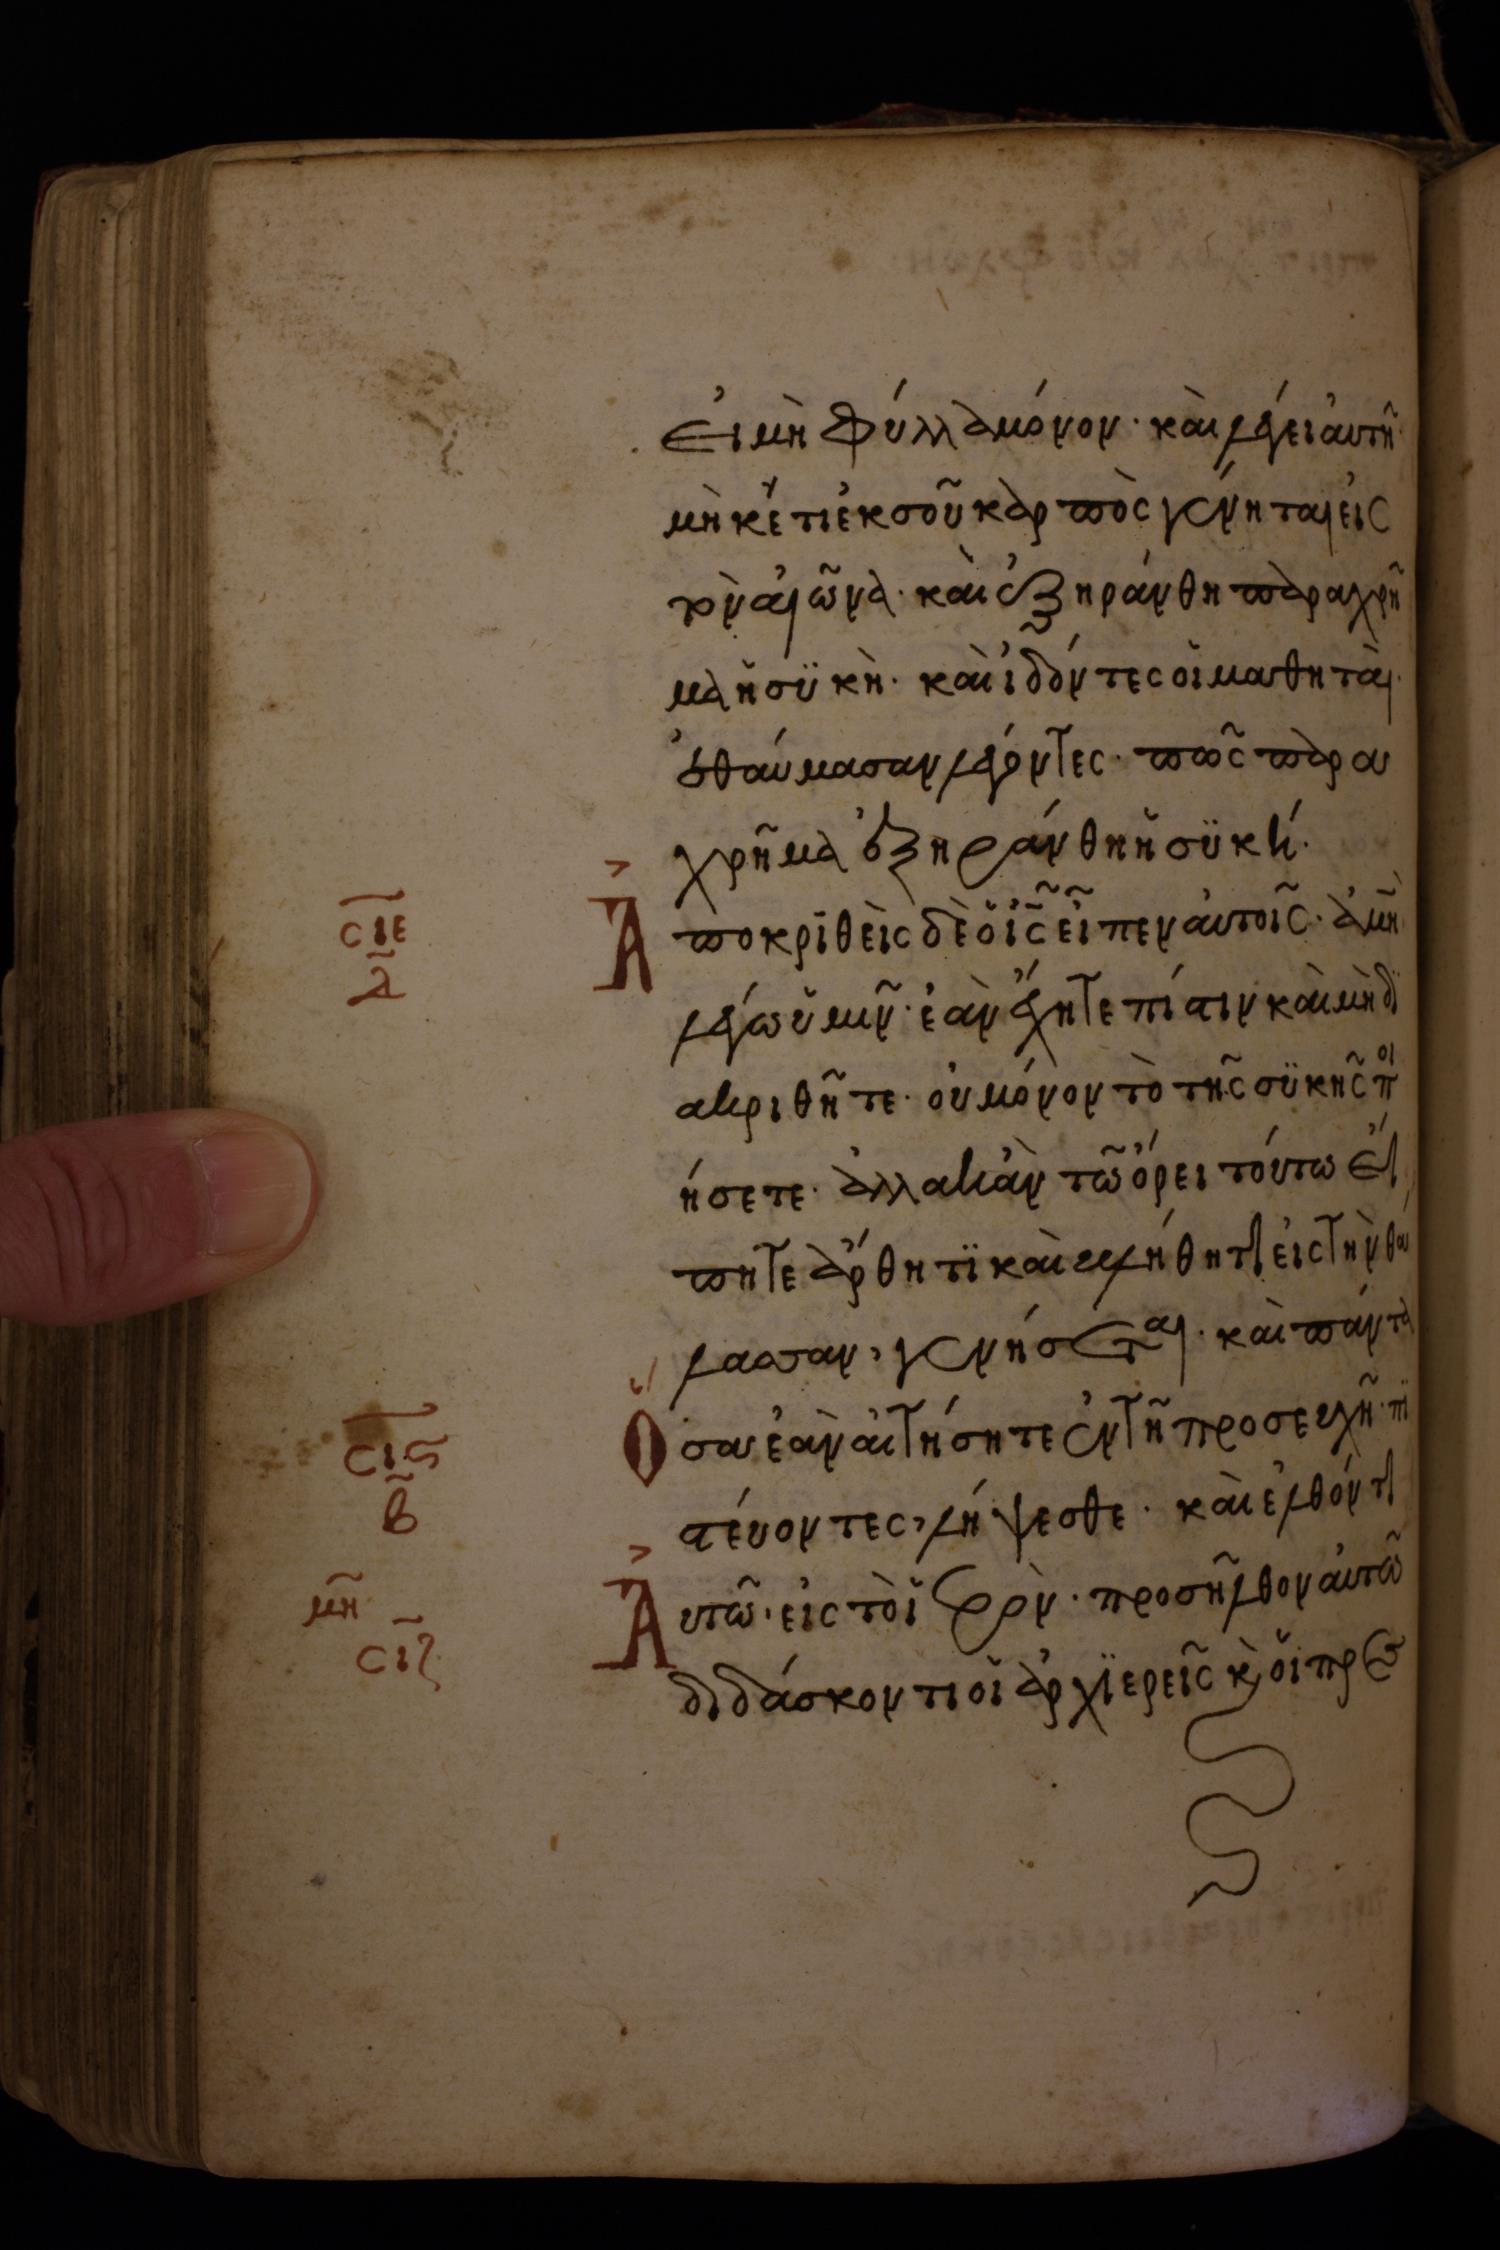 εἰ μὴ φύλλα μόνον· καὶ λέγει αὐτῆ·
μὴκέτι ἐκ σοῦ καρπὸς γένηται εἰς
τὸν αἰῶνα· καὶ ἐξηράνθη παραχρῆ
μα ἡ συκὴ· καὶ ἰδόντες οἱ μαθηταὶ·
ἐθαύμασαν λέγοντες· πῶς παρα
χρῆμα ἐξηράνθη ἡ συκή·
σιε
Ἀποκριθεὶς δὲ ὁ ἰς εἶπεν αὐτοῖς· ἀμὴν
λέγω ὑμῖν· ἐὰν ἔχητε πίστιν καὶ μὴ δι
ακριθῆτε· οὐ μόνον τὸ τῆς συκῆς ποι
ήσετε· ἀλλα κἀν τῶ ὄρει τούτω εἴ
πητε ἄρθητι καὶ βλήθητι εἰς τὴν θά
λασσαν, γενήσεται· καὶ πάντα
σις
β
Ὅσα ἐὰν αἰτήσητε ἐν τῆ προσευχῆ· πι
στέυοντες, λήψεσθε· καὶ ἐλθόντι
μη
σιζ
Ἀυτῶ· εἰς τὸ ἱερὸν· προσῆλθον αὐτῶ
διδάσκοντι οἱ ἀρχιερεῖς κ οἱ πρε